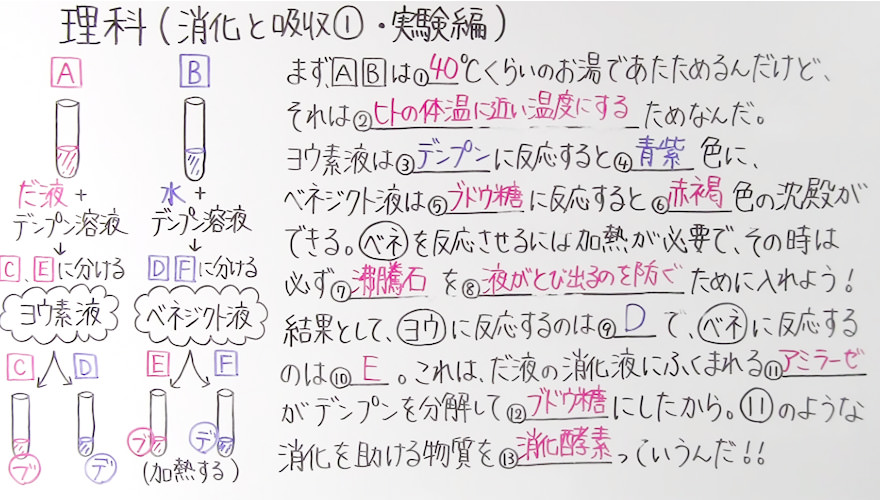 理科(消化と吸収①・実験編)
A B
だ液+ 水+
デンプン溶液 デンプン溶液
↓ ↓
C、Eに分ける D Fに分ける
ヨウ素液 ベネジクト液
C D E F
ブ デ ブ デ
(加熱する)
まず、A Bは①40℃くらいのお湯であたためるんだけど、
それは②ヒトの体温に近い温度にするためなんだ。
ヨウ素液は③デンプンに反応すると④青紫色に、
ベネジクト液は⑤ブドウ糖に反応すると⑥赤褐色の沈殿が
できる。ベネを反応させるには加熱が必要で、その時は
必ず⑦沸騰石を⑧液がとび出るのを防ぐために入れよう!
結果として、ヨウに反応するのは⑨Dで、ベネに反応する
のは⑩E。これは、だ液の消化液にふくまれる⑪アミラーゼ
がデンプンを分解して⑫ブドウ糖にしたから。⑪のような
消化を助ける物質を⑬消化酵素っていうんだ!!